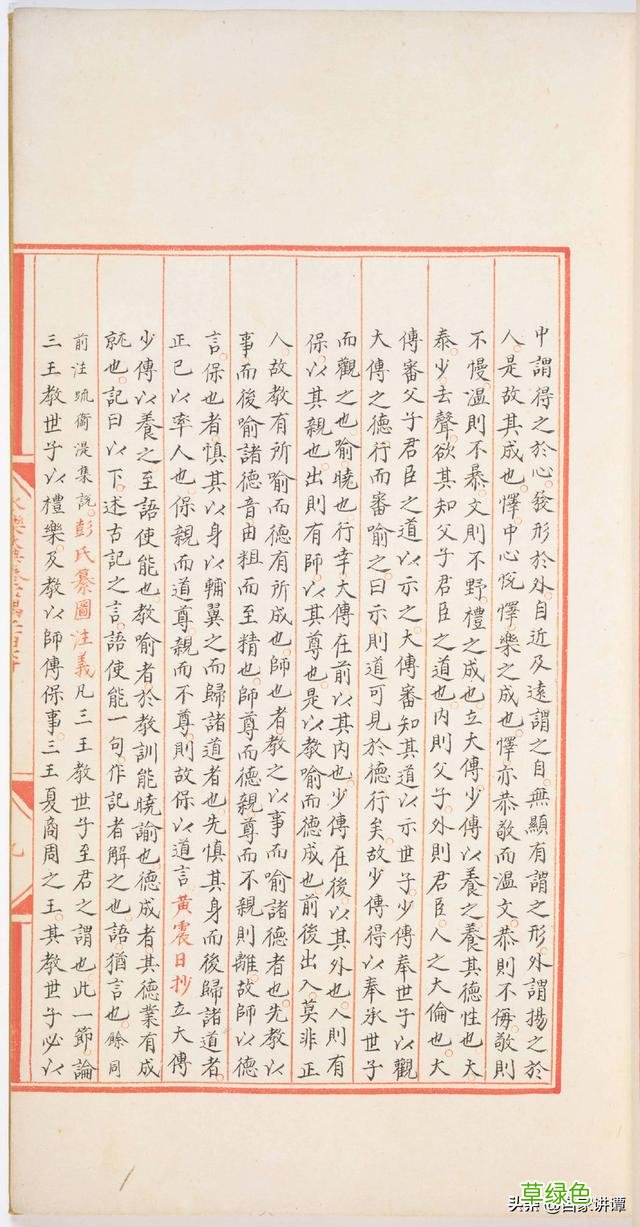 中謂得之於心。發形於外。自近及遠謂之自。無顯有謂之形。外謂揚之於
人。是故其成也。懌。中心悅懌。樂之成也。懌亦恭敬而溫文。恭則不侮。敬則
不慢。溫則不暴。文則不野。禮之成也。立大傅。少傅以養之。養其德性也。大
泰。少去聲。欲其知父子君臣之道也。內則父子。外則君臣。人之大倫也。大
傅審父子君臣之道以示之。大傅審知其道以示世子。少傅奉世子以觀
大傅之德行而審喻之。曰示則道可見於德行矣。故少傅得以奉承世子
而觀之也。喻曉也。行幸大傅在前以其內也。少傅在後以其外也。入則有
保。以其親也。出則有師。以其尊也。是以教喻而德成也。前後出入。莫非正
人。故教有所喻而德有所成也。師也者。教之以事而喻諸德者也。先教以
事而後喻諸德音由粗而至精也。師尊而德親尊而不親則離。故師以德
言。保也者。慎其身以輔翼之而歸諸道者也。先慎其身而後歸諸道者。
正已以率人也。保親而道尊。親而不尊則故保以道言。黃震日抄立大傅
少傅以養之至語使能也。教喻者於教訓能曉諭也。德成者。其德業有成
就也。記曰以下。述古記之言。語使能一句。作記者解之也。語猶言也。餘同
前注疏衞湜集說。彭氏纂圖注義凡三王教世子至君之謂也此一節。論
三王教世子以禮樂。及教以師傅保事。三王夏商周之王。其教世子必以
头条 @百家讲谭
草绿色